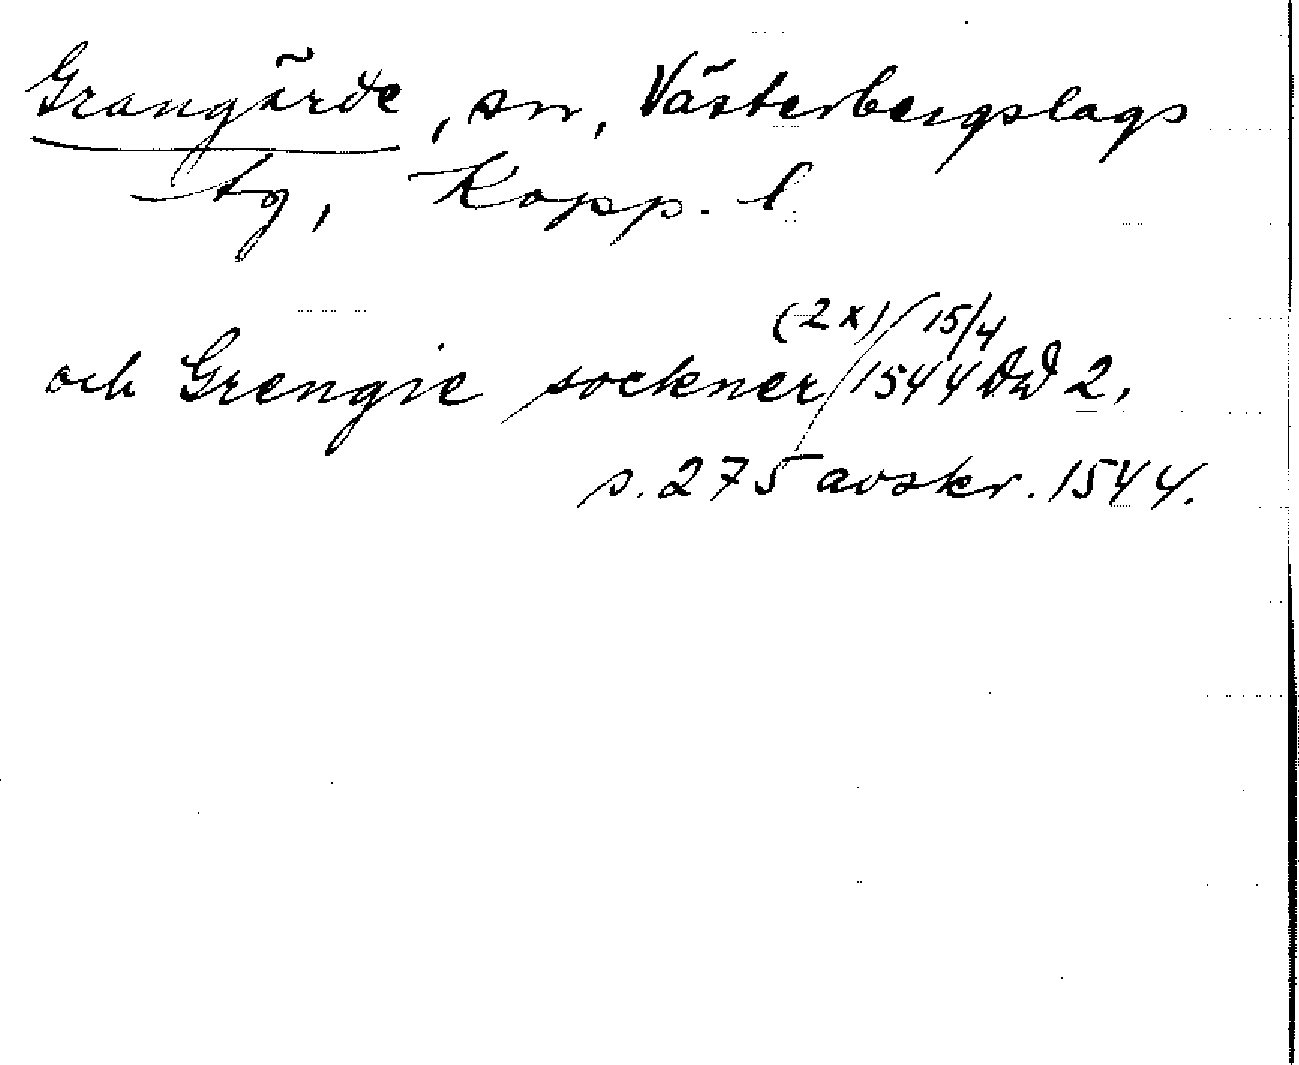 Grangärde, sn, Västerbergslags
tg, Kopp. l
(2x) 15/4
och Grengie sockner 1544 DD 2,
s. 275 avskr. 1544.